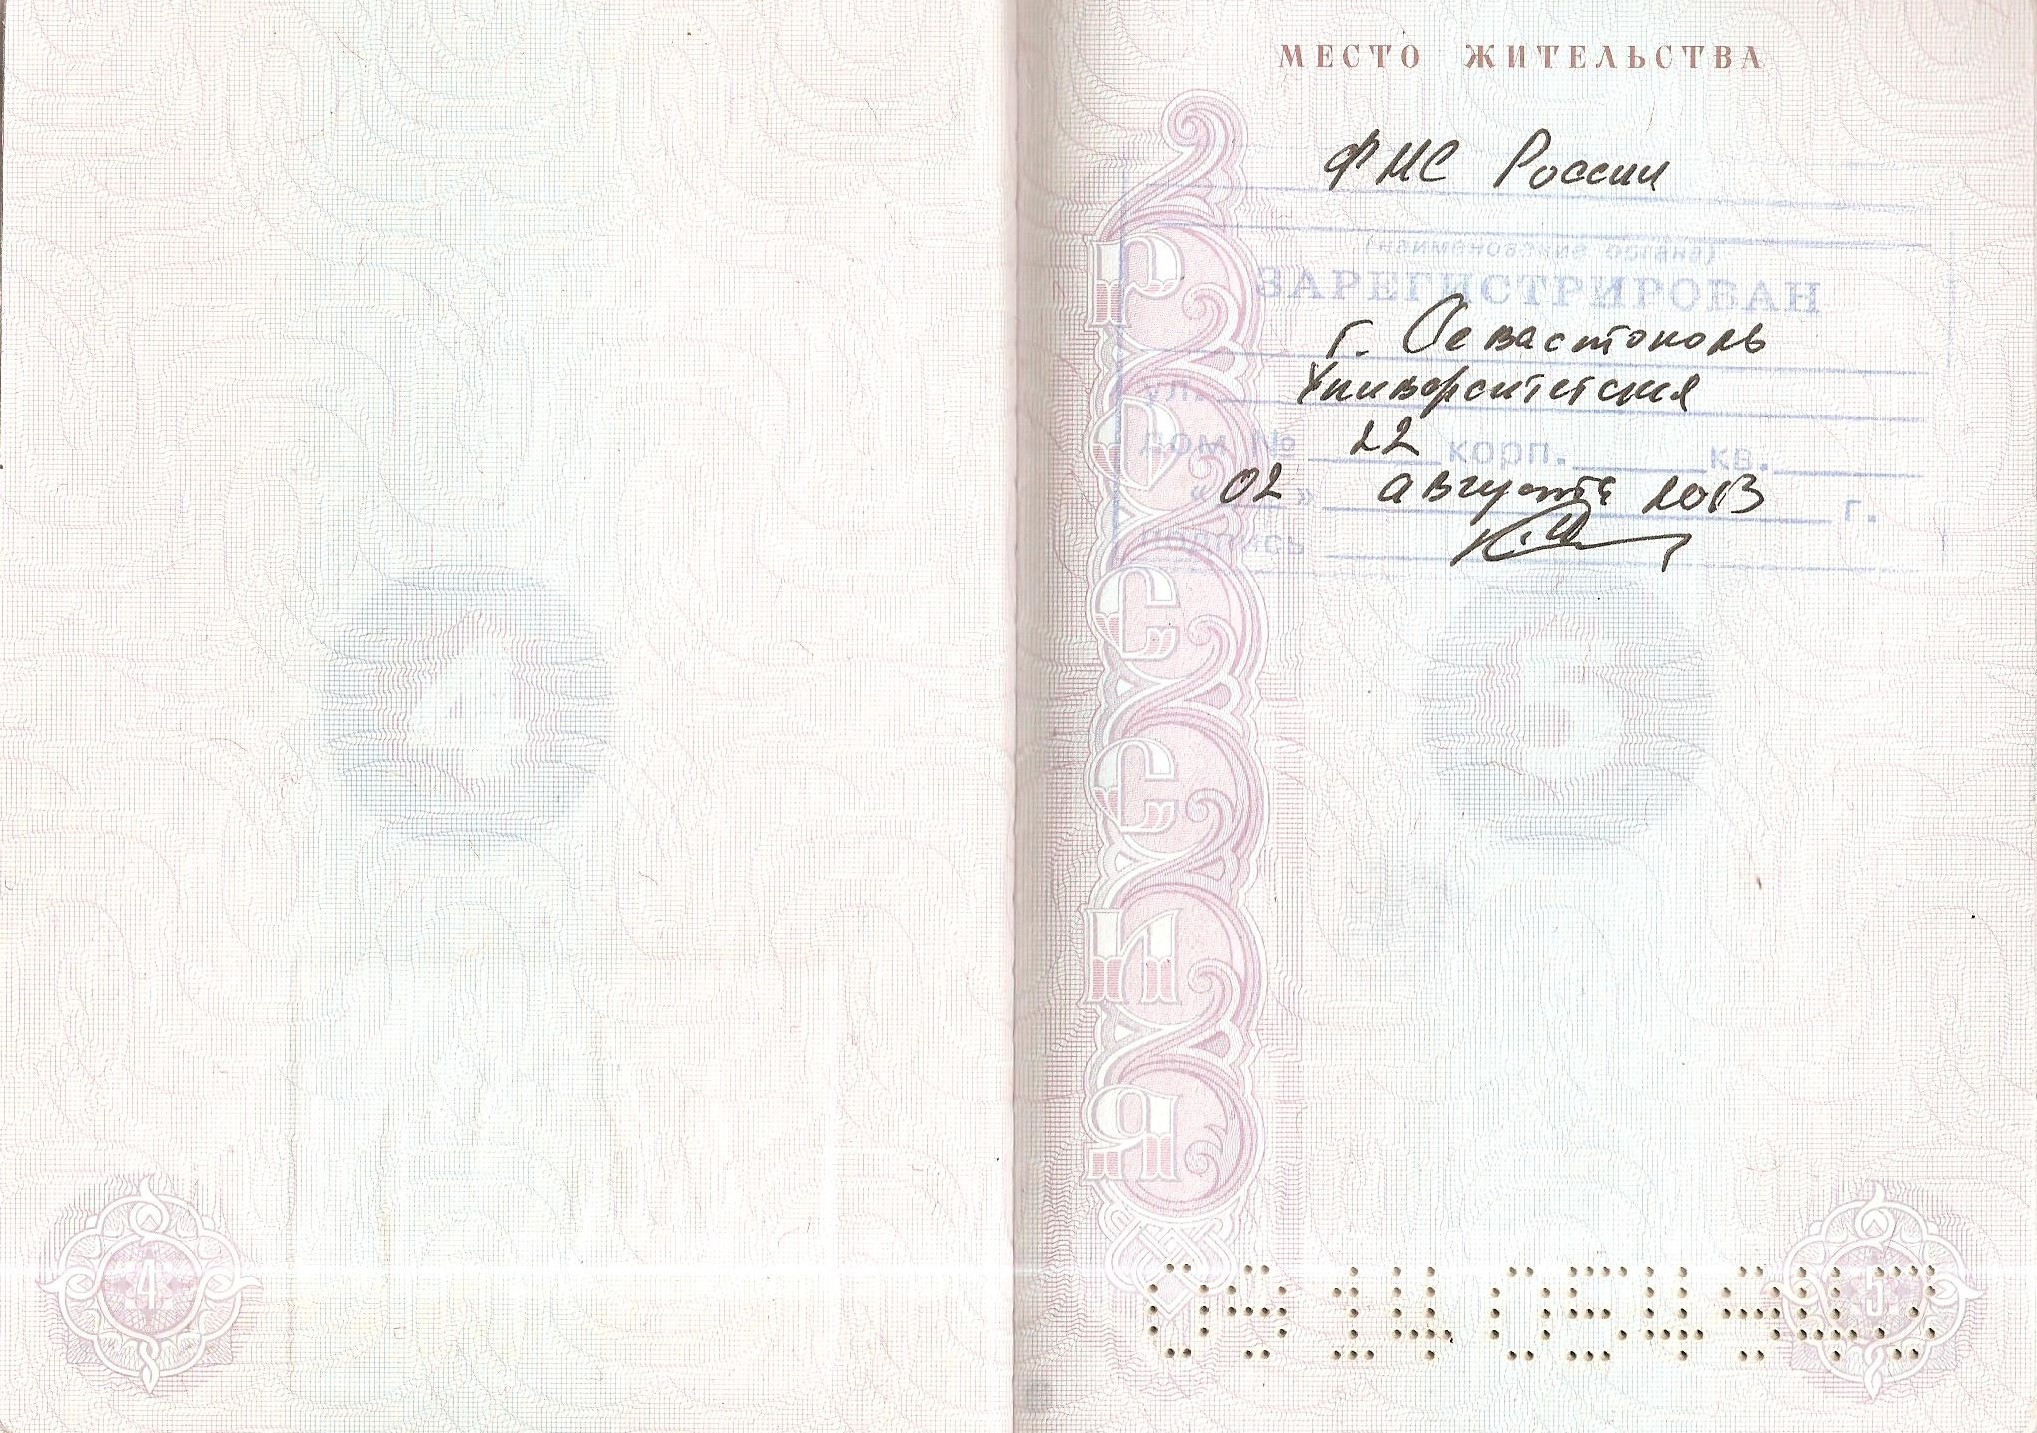 МЕСТО ЖИТЕЛЬСТВА
ФМС России
(наименование органа)
ЗАРЕГИСТРИРОВАН
г. Севастополь
ул. Университетская
дом № 22 корп. кв.
«02» августа 2013 г.
подпись
РОССИЯ
4
5
4
5
09 14